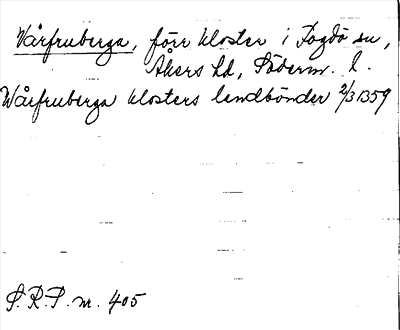 Vårfruberga, förr kloster i Fogdö sn,
Åkers hd, Söderm. l.
Wårfruberga klosters landbönder 2/3 1359
S.R.P. nr. 405